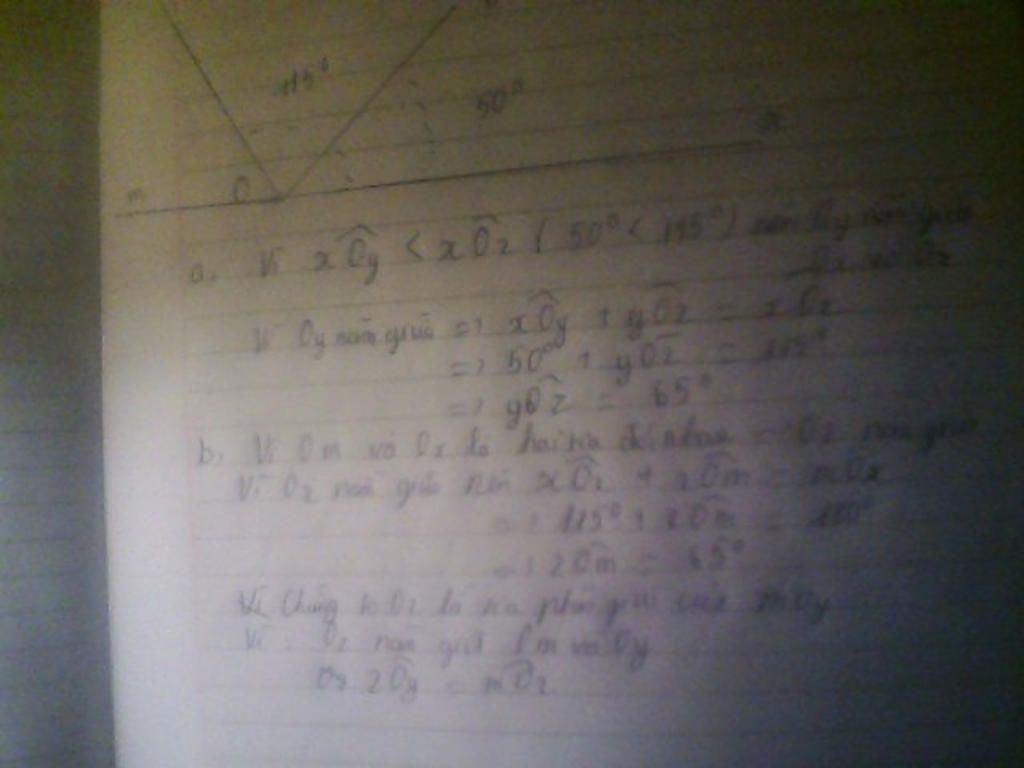 115°
50°
x
m O
a. Vì xÔy < xÔz ( 50° < 115° ) nên Oy nằm giữa
Ox và Oz
Vì Oy nằm giữa => xÔy + yÔz = xÔz
=> 50° + yÔz = 115°
=> yÔz = 65°
b, Vì Om và Ox là hai tia đối nhau => Oz nằm giữa
Vì Oz nằm giữa nên xÔz + zÔm = mÔx
=> 115° + zÔm = 180°
=> zÔm = 65°
Oz là tia phân giác của mOy
Vì : Oz nằm giữa Om và Oy
zÔy = mÔz